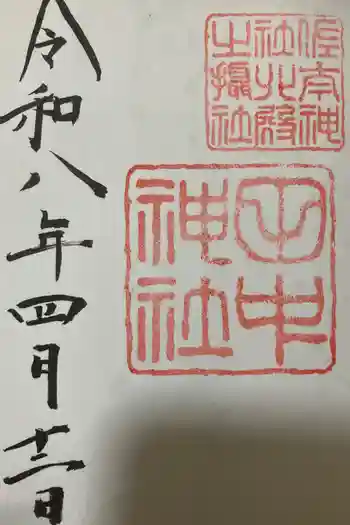 佐太神
社北殿
之攝社
田中
神社
令和八年四月十二日